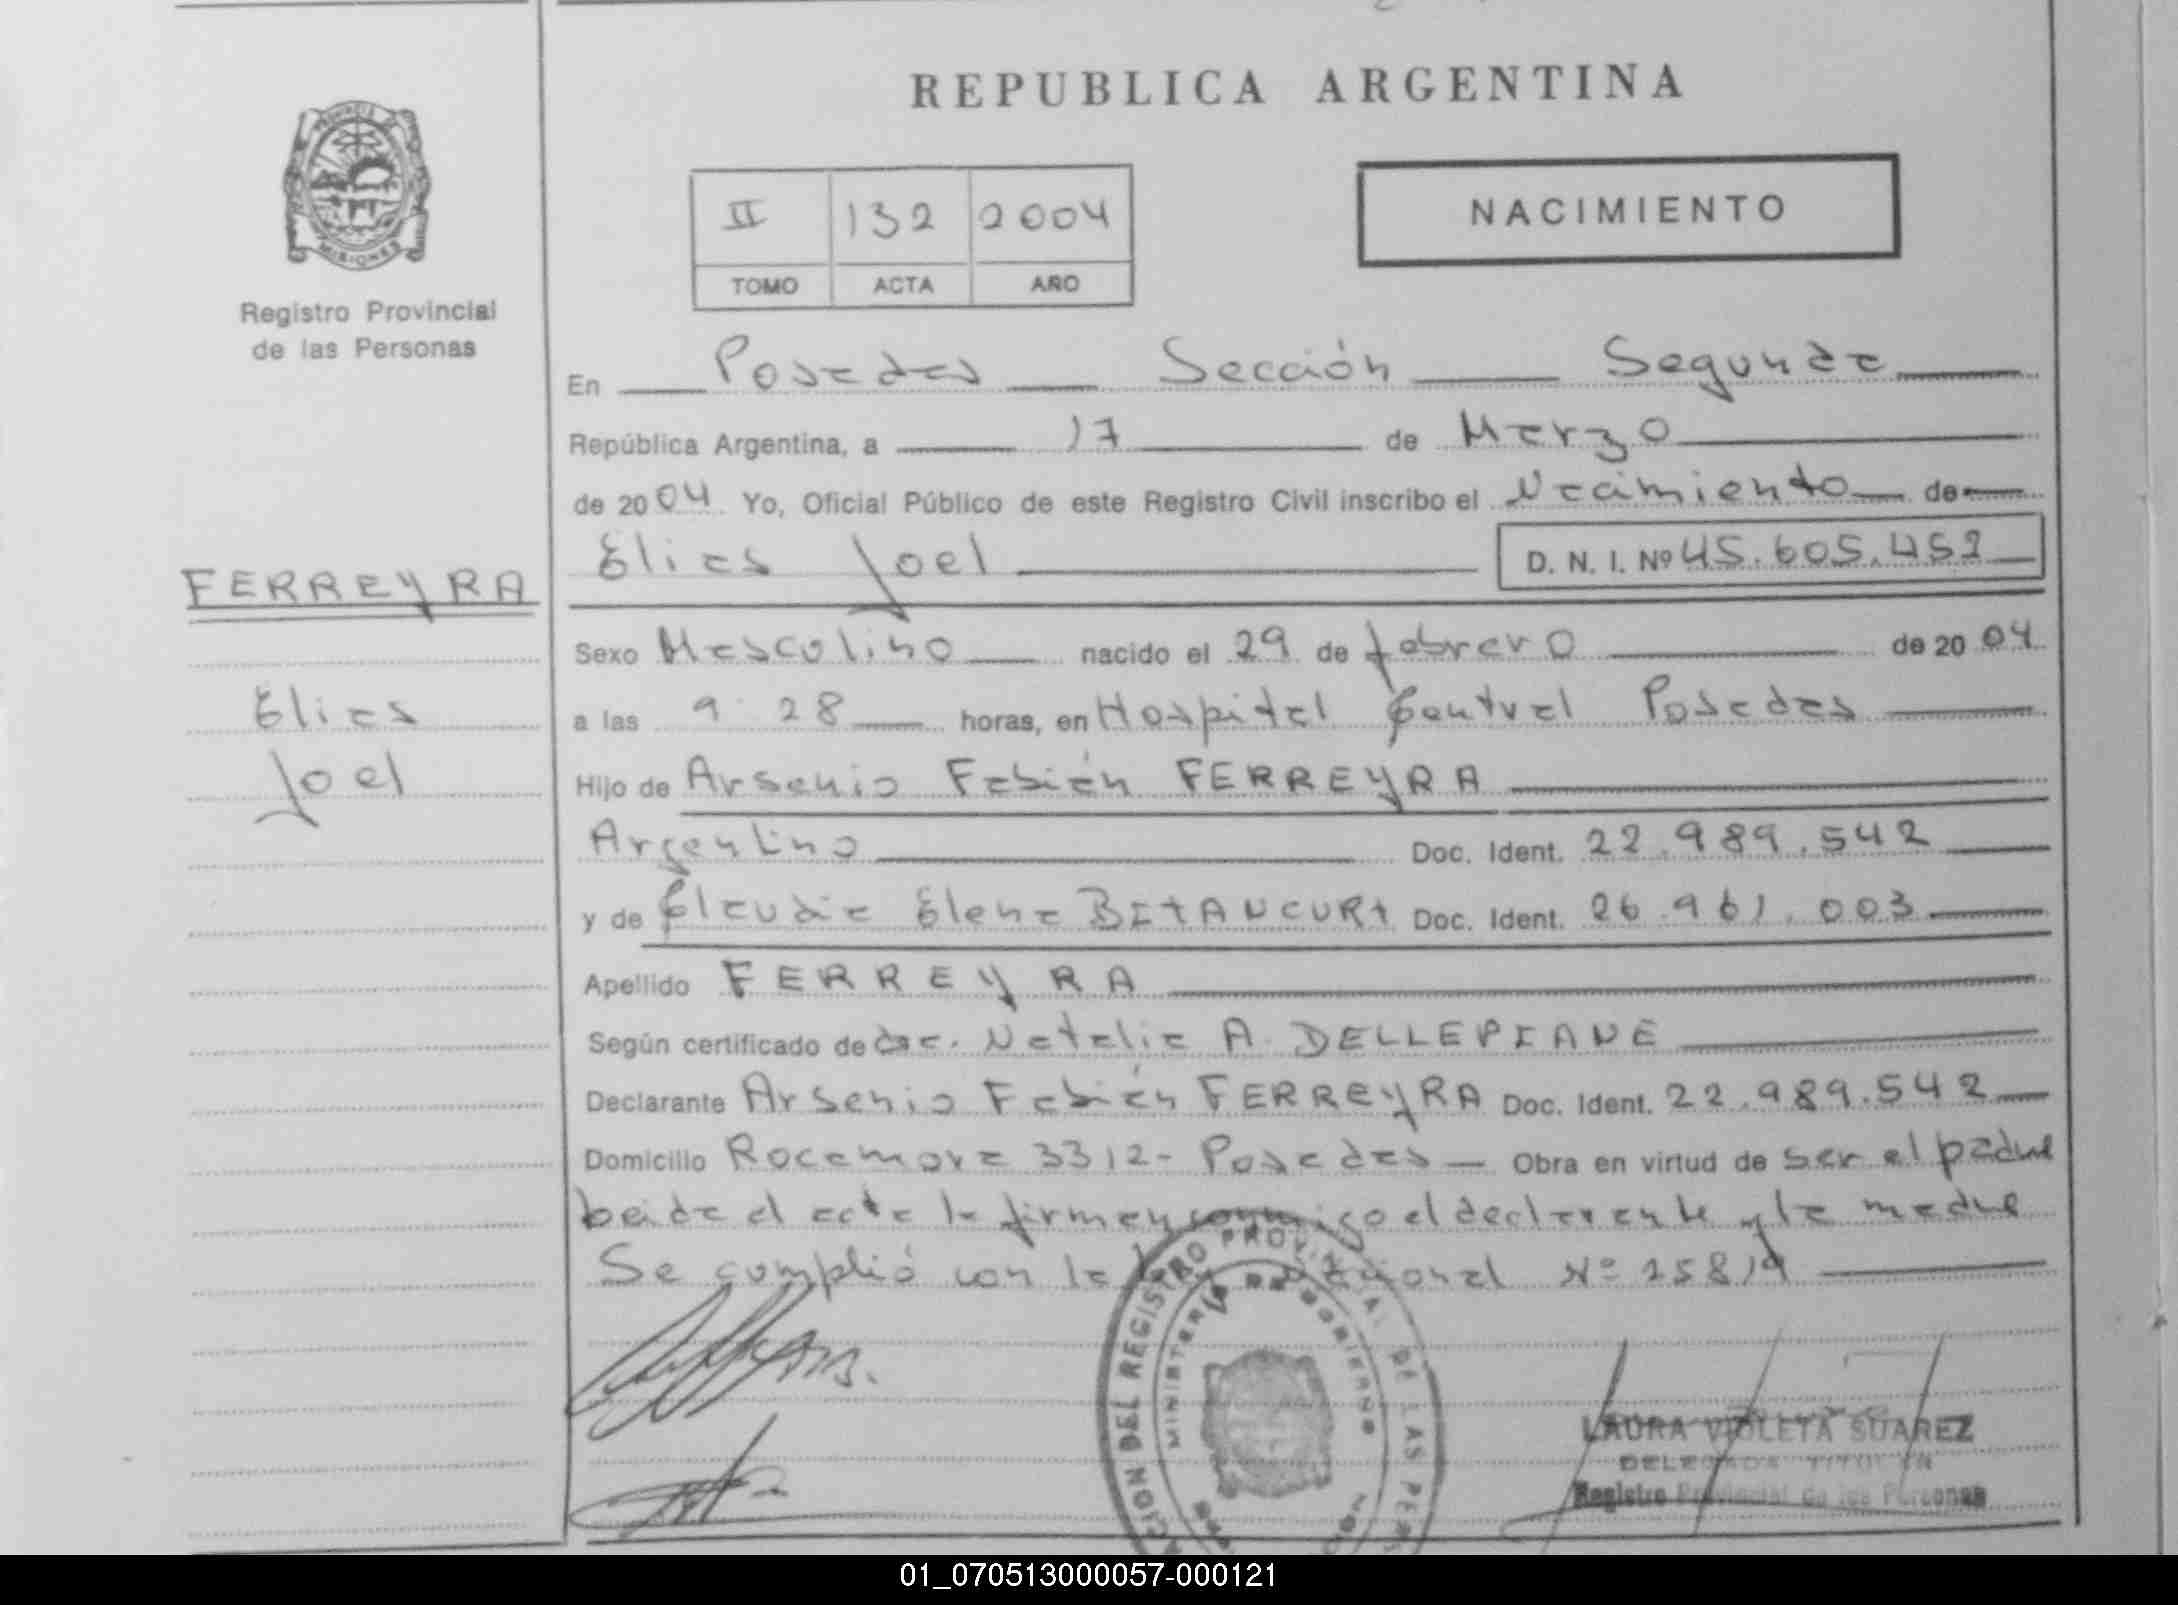 REPUBLICA ARGENTINA
PROVINCIA DE
MISIONES
Registro Provincial
de las Personas
II 132 2004
TOMO ACTA AÑO
NACIMIENTO
En Posadas Sección Segunda
República Argentina, a 17 de Marzo
de 2004 Yo, Oficial Público de este Registro Civil inscribo el Nacimiento de
Elias Joel D. N. I. Nº 45.605.452
FERREYRA
Elias
Joel
Sexo Masculino nacido el 29 de febrero de 2004
a las 9 28 horas, en Hospital Central Posadas
Hijo de Arsenio Fabián FERREYRA
Argentino Doc. Ident. 22.989.542
y de Claudia Elena BETANCURT Doc. Ident. 26.961.003
Apellido FERREYRA
Según certificado de Natalia A. DELLEPIANE
Declarante Arsenio Fabián FERREYRA Doc. Ident. 22.989.542
Domicilio Rocamora 3312- Posadas Obra en virtud de ser el padre
Leida el acta la firman conmigo el declarante y la madre
Se cumplió con la Ley Nacional Nº 25819
DEL REGISTRO PROVINCIAL DE LAS
MINISTERIO DE GOBIERNO
LAURA VIOLETA SUAREZ
DELEGADA TITULAR
Registro Provincial de las Personas
01_070513000057-000121